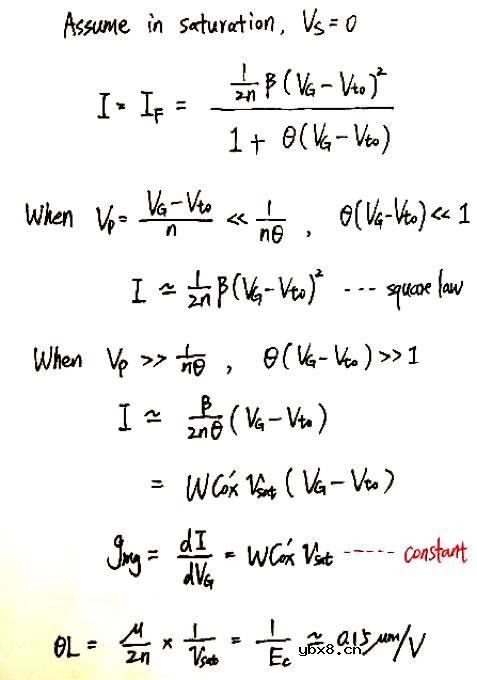 Assume in saturation, V_S = 0
I = I_F = \frac{\frac{1}{2n} β (V_G - V_{to})^2}{1 + θ(V_G - V_{to})}
When V_P = \frac{V_G - V_{to}}{n} << \frac{1}{nθ} , θ(V_G - V_{to}) << 1
I ≃ \frac{1}{2n} β (V_G - V_{to})^2 --- square law
When V_P >> \frac{1}{nθ} , θ(V_G - V_{to}) >> 1
I ≃ \frac{β}{2nθ} (V_G - V_{to})
= W C_{ox}' V_{sat} (V_G - V_{to})
g_{mg} = \frac{dI}{dV_G} = W C_{ox}' V_{sat} ----- constant
θL = \frac{μ}{2n} × \frac{1}{V_{sat}} = \frac{1}{E_c} ≃ 0.15 μm/V
ybx8.cn